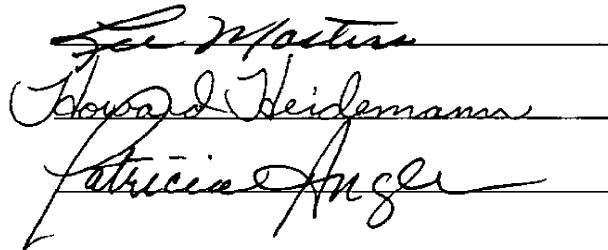 Lee Masters
Howard Heidemann
Patricia Angle